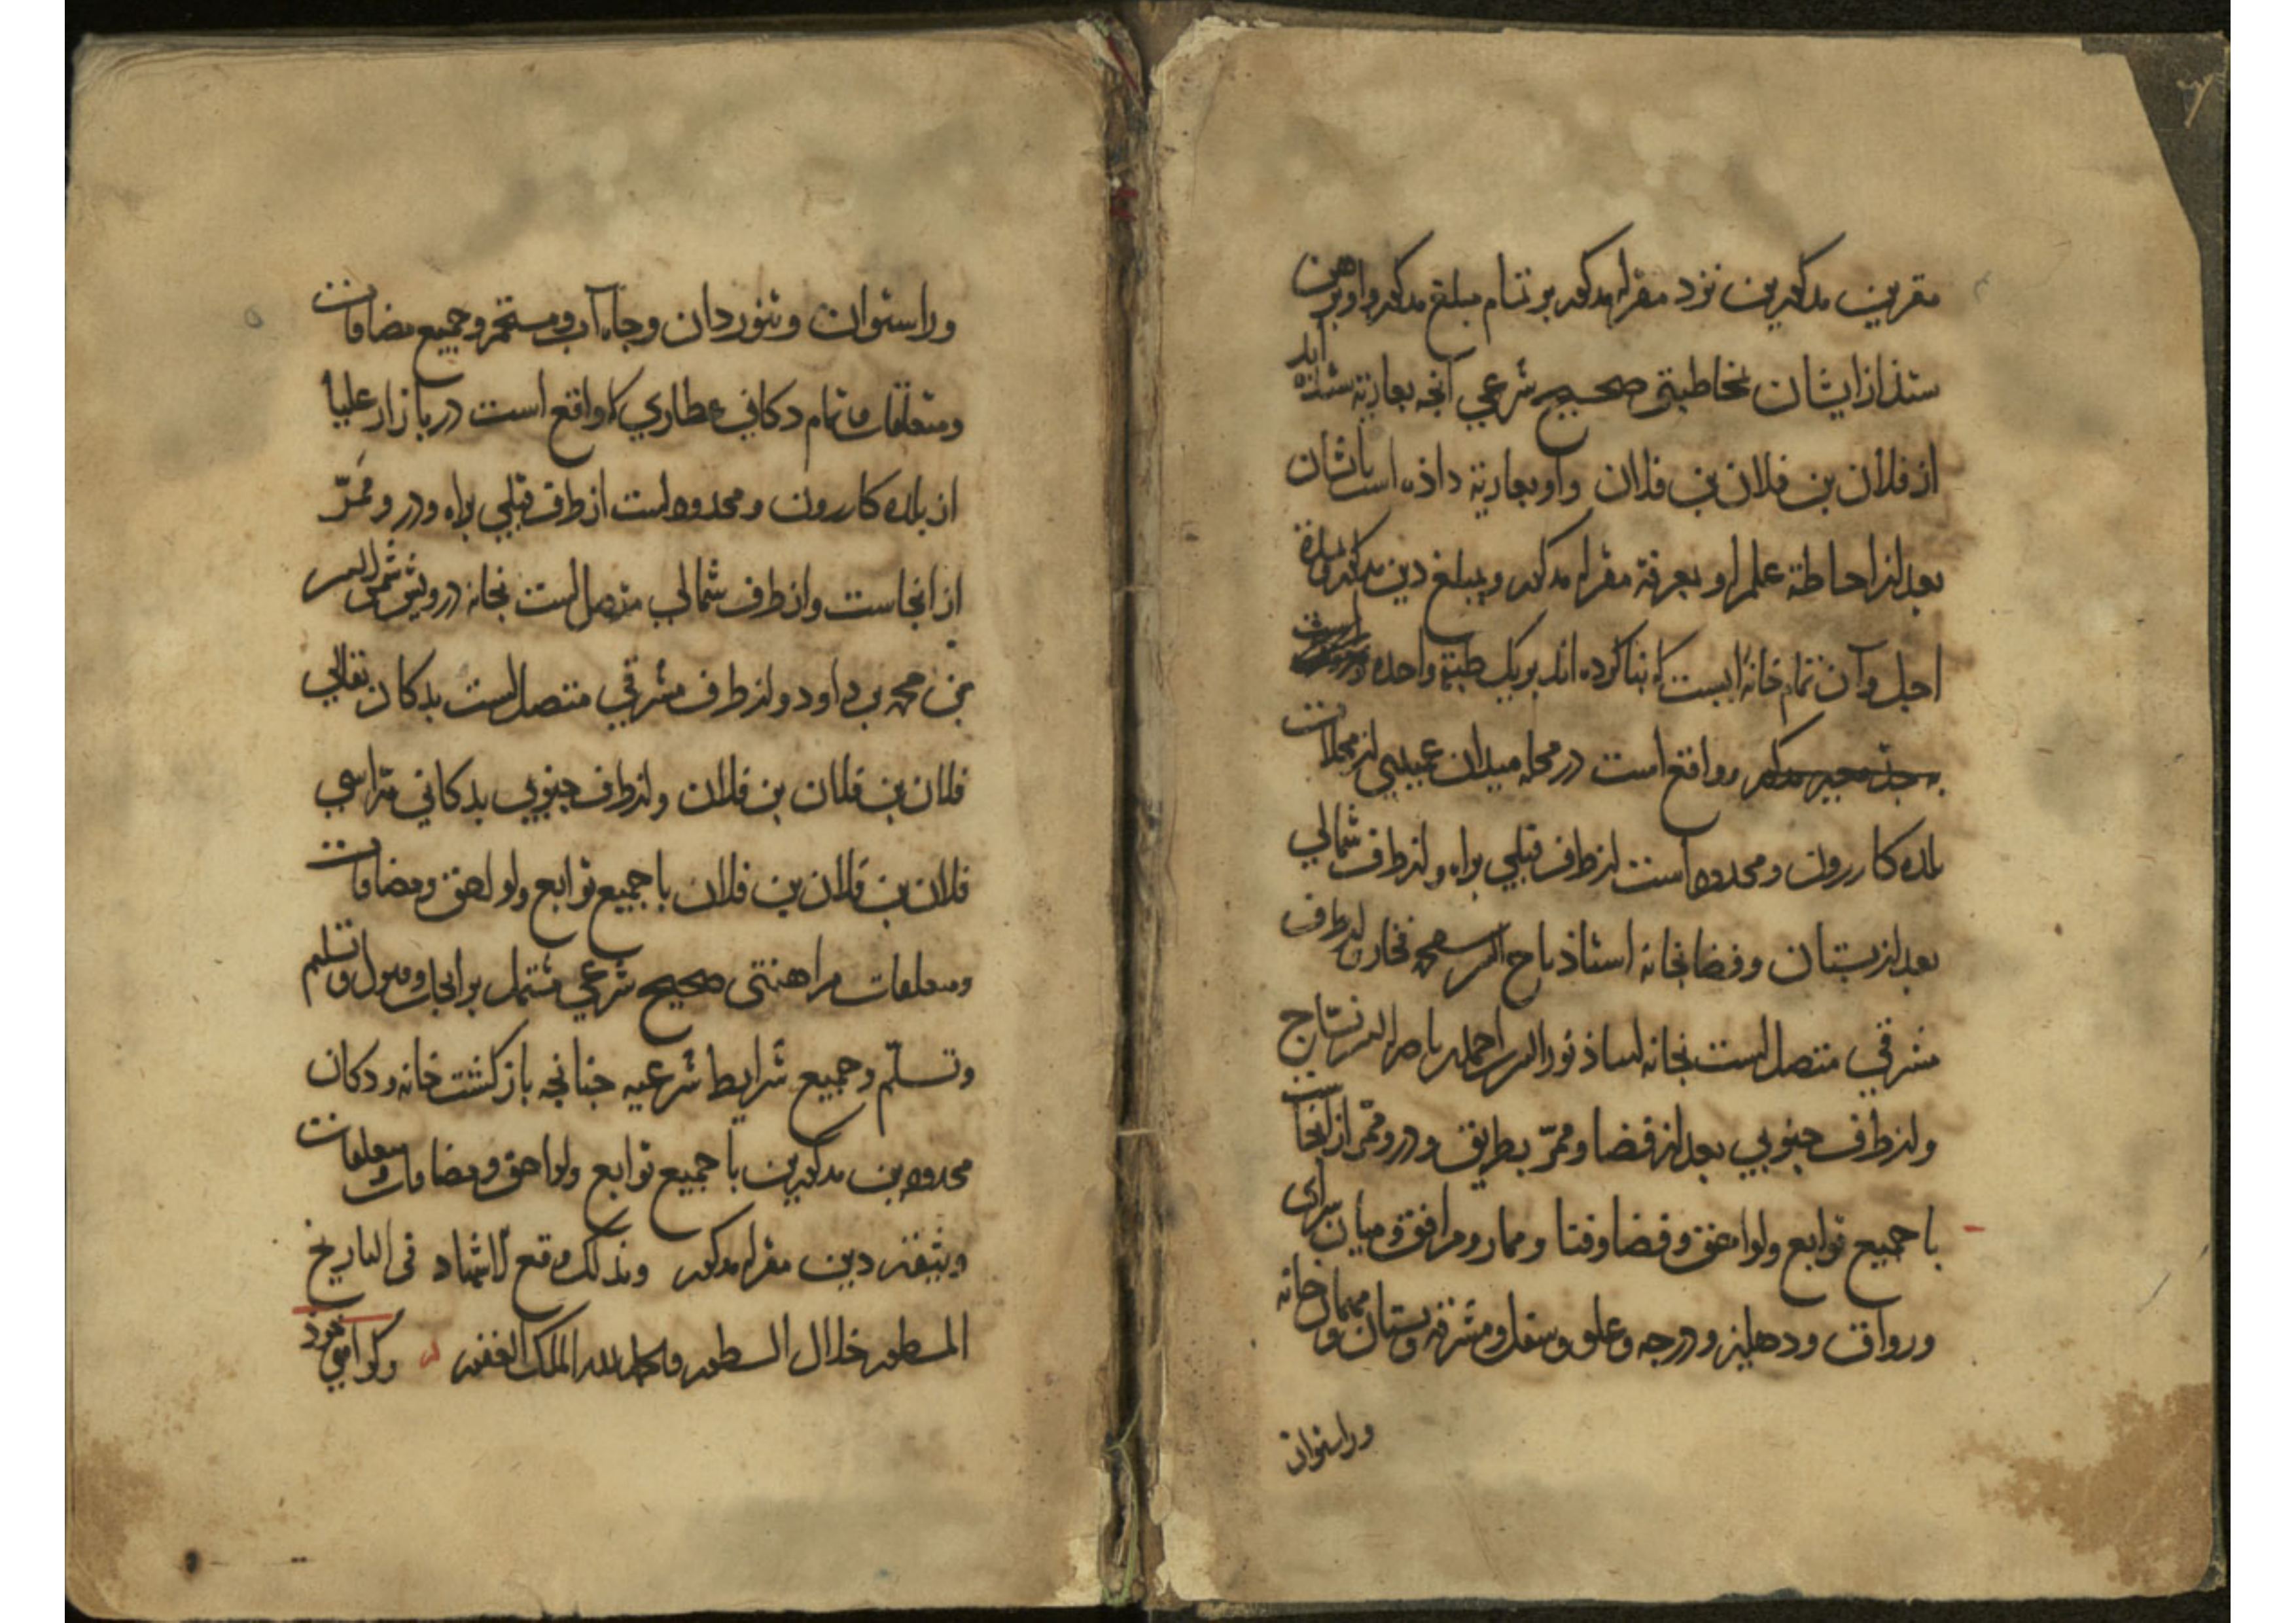 مقرین مذکورین نزد مقرله مذکور بر تمام مبلغ مذکور و او برهن
ستذ از ایشان مخاطبتی صحیح شرعی آنجه بعاریة ستذه اند
از فلان بن فلان بن فلان و او بعاریة داذه است باشان
بعد از احاطة علم او بعرفة مقرله مذکور و بمبلغ دین مذکور
اجل و آن تمام خانه ایست که بنا کرده اند بر یک طبقة واحده
و واقع است در محله میدان از محلات
بلده کازرون و محدوده است از طرف قبلی براه و از طرف شمالی
بعد از بستان و فضا بخانه استاذ تاج الدین محمد فخار و از طرف
مشرقی متصل است بخانه استاذ نور الدین احمد بن ناصر الدین نساج
و از طرف جنوبی بعد از فضا و ممرّ بطریق و در و ممر از آنجاست
با جمیع توابع و لواحق و فضا و فنا و ممار و مرافق و میان سرای
و رواق و دهلیز و درجه و علو و سفل و مشرفه و بستان و مهمان خانه
وراستوان
وراستوان و تنوردان و جاه آب و مستحم و جمیع مضافات
و متعلقات و تمام دکانی عطاری که واقع است در بازار علیا
از بلده کازرون و محدوده است از طرف قبلی براه و در و ممرّ
از انجاست و از طرف شمالی متصل است بخانه درویش شمس الدین
بن محمد بن داود و از طرف مشرقی متصل است بدکان بقالی
فلان بن فلان بن فلان و از طرف جنوبی بدکانی
فلان بن فلان بن فلان با جمیع توابع و لواحق و مضافات
و متعلقات مراهنتی صحیح شرعی مشتمل بر ایجاب و قبول و تسلیم
و تسلّم و جمیع شرایط شرعیه جنانجه بازکشت خانه و دکان
محدودین مذکورین با جمیع توابع و لواحق و مضافات و متعلقات
دین مقرله مذکور و بذلک وقع الاشهاد فی التاریخ
المسطور خلال السطور والحمد لله الملک الغفور